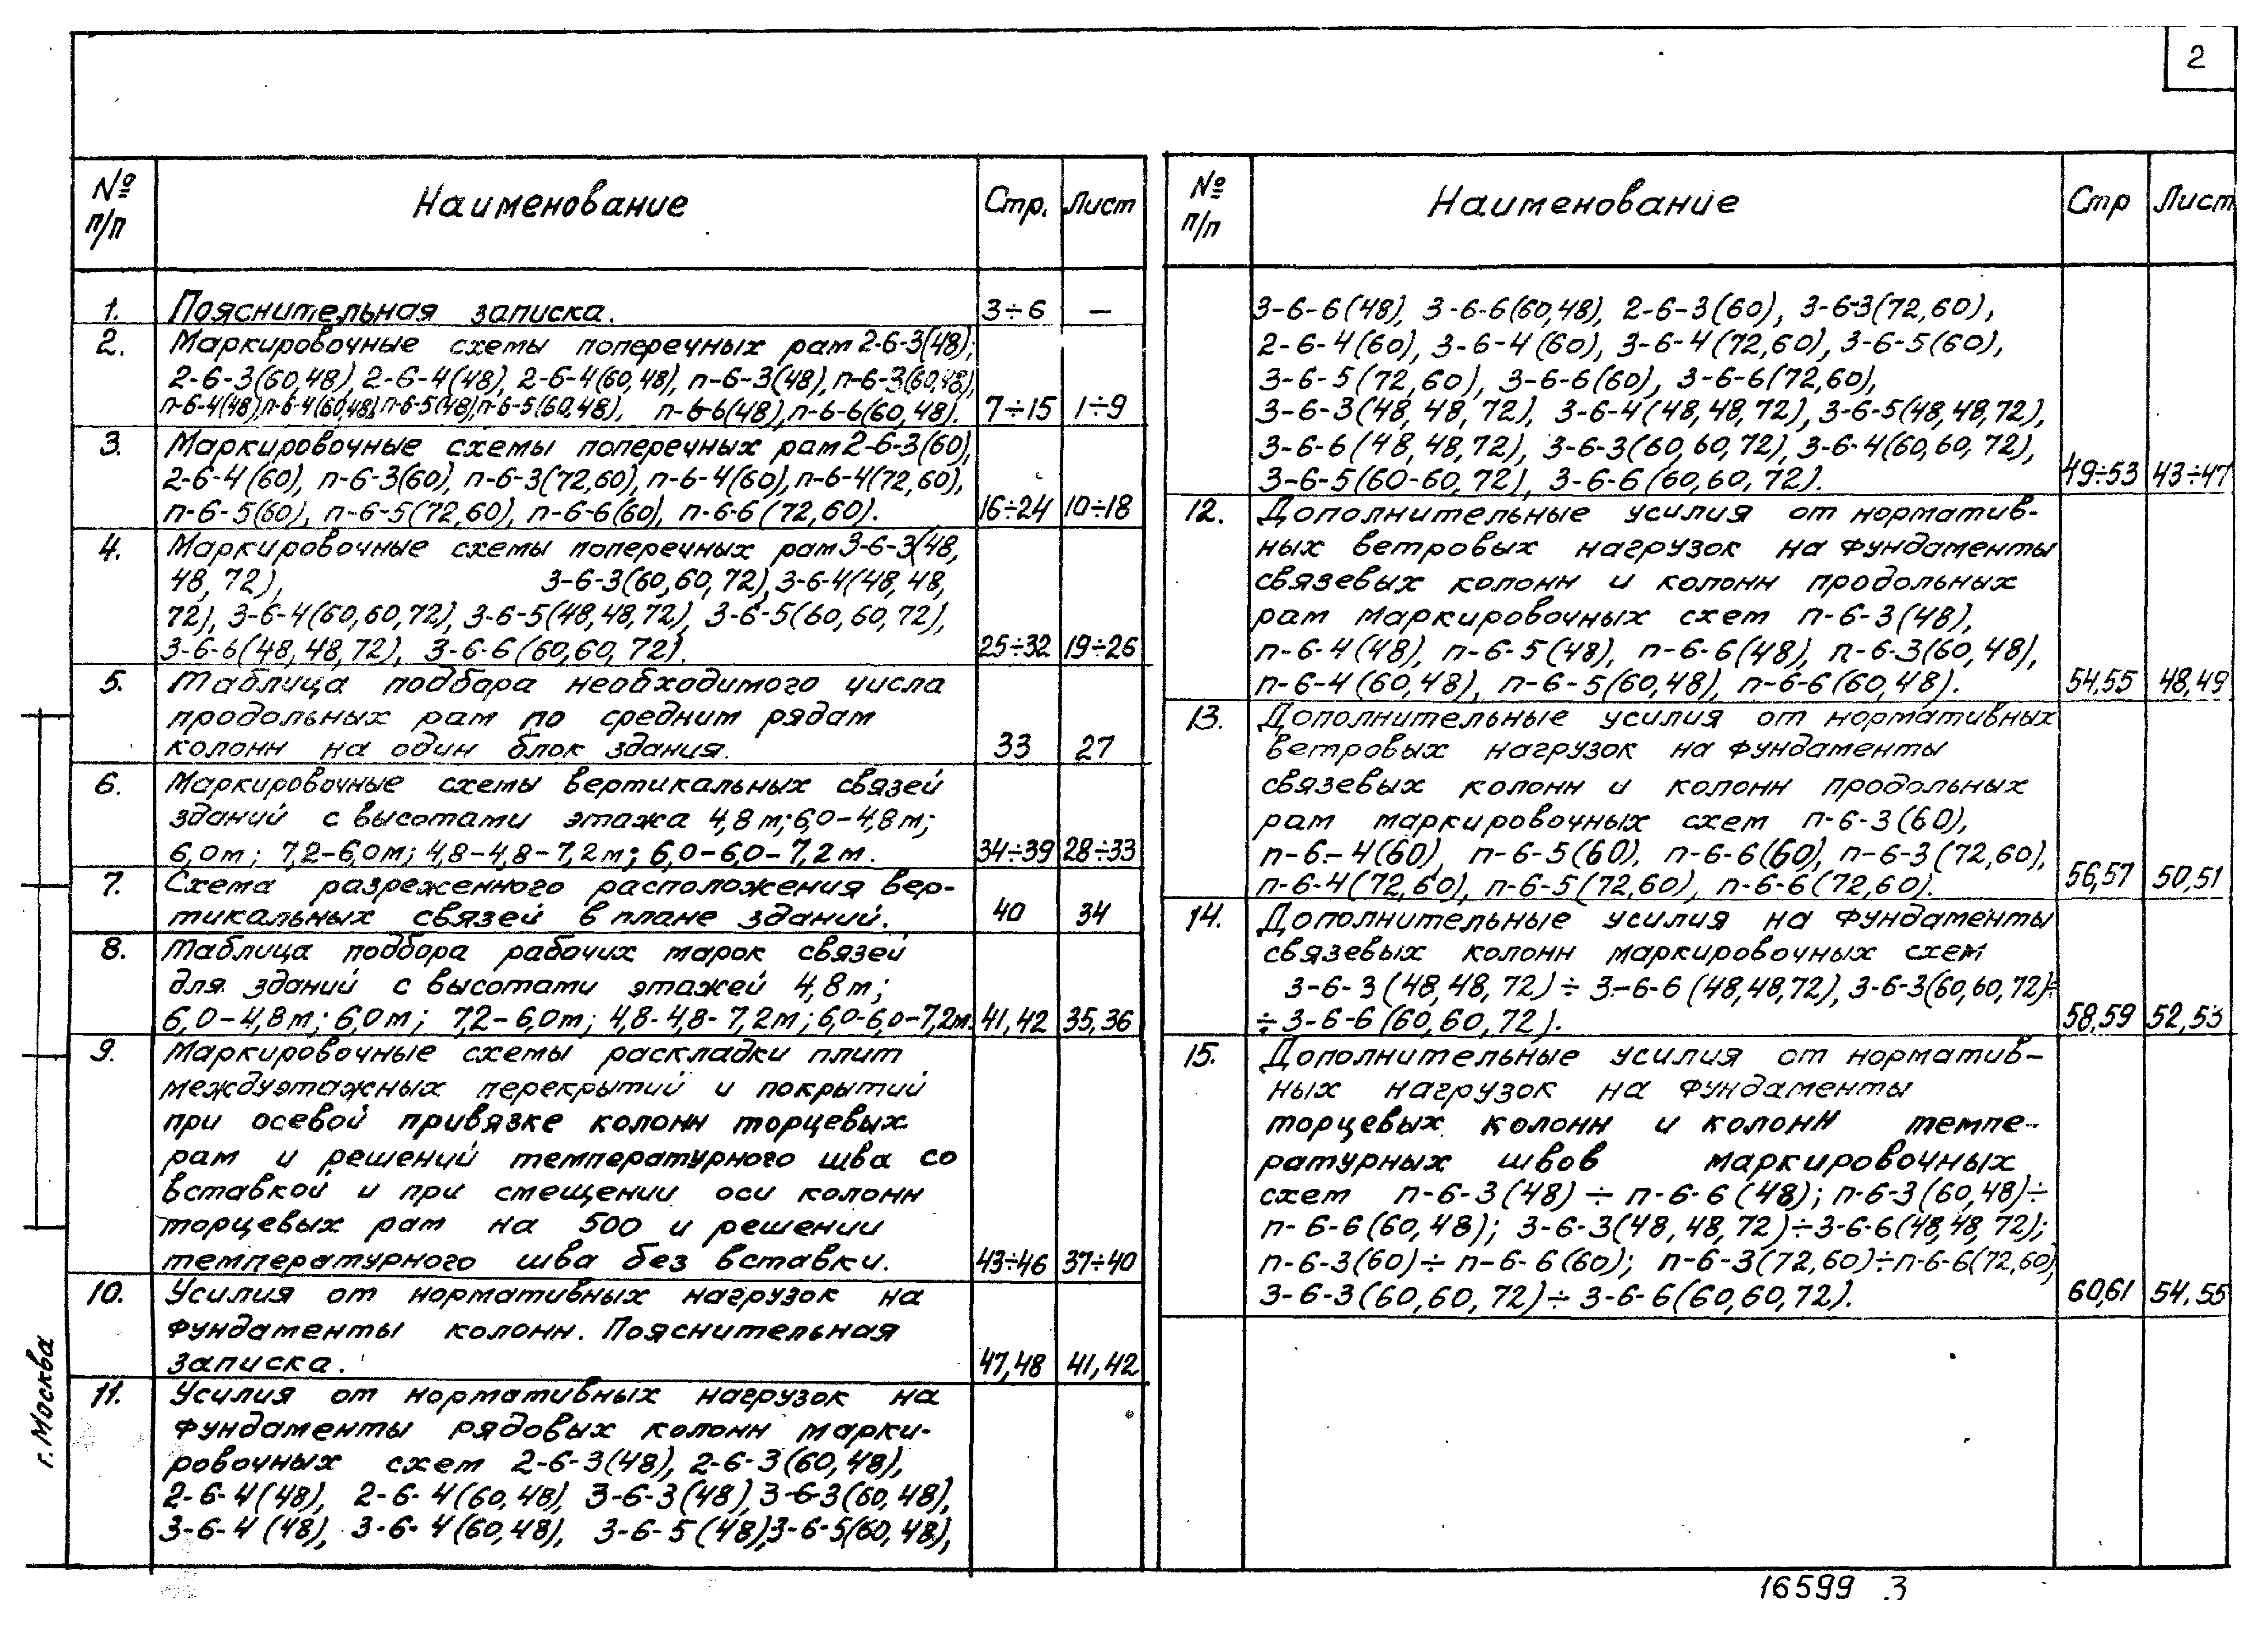 2
№ п/п Наименование Стр. Лист
1. Пояснительная записка. 3÷6 —
2. Маркировочные схемы поперечных рам 2-6-3(48),
2-6-3(60,48), 2-6-4(48), 2-6-4(60,48), п-6-3(48), п-6-3(60,48),
п-6-4(48), п-6-4(60,48), п-6-5(48), п-6-5(60,48), п-6-6(48), п-6-6(60,48). 7÷15 1÷9
3. Маркировочные схемы поперечных рам 2-6-3(60),
2-6-4(60), п-6-3(60), п-6-3(72,60), п-6-4(60), п-6-4(72,60),
п-6-5(60), п-6-5(72,60), п-6-6(60), п-6-6(72,60). 16÷24 10÷18
4. Маркировочные схемы поперечных рам 3-6-3(48,
48,72), 3-6-3(60,60,72), 3-6-4(48,48,
72), 3-6-4(60,60,72), 3-6-5(48,48,72), 3-6-5(60,60,72),
3-6-6(48,48,72), 3-6-6(60,60,72). 25÷32 19÷26
5. Таблица подбора необходимого числа
продольных рам по средним рядам
колонн на один блок здания. 33 27
6. Маркировочные схемы вертикальных связей
зданий с высотами этажа 4,8м; 6,0-4,8м;
6,0м; 7,2-6,0м; 4,8-4,8-7,2м; 6,0-6,0-7,2м. 34÷39 28÷33
7. Схема разреженного расположения вер-
тикальных связей в плане зданий. 40 34
8. Таблица подбора рабочих марок связей
для зданий с высотами этажей 4,8м;
6,0-4,8м; 6,0м; 7,2-6,0м; 4,8-4,8-7,2м; 6,0-6,0-7,2м. 41,42 35,36
9. Маркировочные схемы раскладки плит
междуэтажных перекрытий и покрытий
при осевой привязке колонн торцевых
рам и решений температурного шва со
вставкой и при смещении оси колонн
торцевых рам на 500 и решении
температурного шва без вставки. 43÷46 37÷40
10. Усилия от нормативных нагрузок на
фундаменты колонн. Пояснительная
записка. 47,48 41,42
11. Усилия от нормативных нагрузок на
фундаменты рядовых колонн марки-
ровочных схем 2-6-3(48), 2-6-3(60,48),
2-6-4(48), 2-6-4(60,48), 3-6-3(48), 3-6-3(60,48),
3-6-4(48), 3-6-4(60,48), 3-6-5(48), 3-6-5(60,48),
№ п/п Наименование Стр Лист
3-6-6(48), 3-6-6(60,48), 2-6-3(60), 3-6-3(72,60),
2-6-4(60), 3-6-4(60), 3-6-4(72,60), 3-6-5(60),
3-6-5(72,60), 3-6-6(60), 3-6-6(72,60),
3-6-3(48,48,72), 3-6-4(48,48,72), 3-6-5(48,48,72),
3-6-6(48,48,72), 3-6-3(60,60,72), 3-6-4(60,60,72),
3-6-5(60-60,72), 3-6-6(60,60,72). 49÷53 43÷47
12. Дополнительные усилия от норматив-
ных ветровых нагрузок на фундаменты
связевых колонн и колонн продольных
рам маркировочных схем п-6-3(48),
п-6-4(48), п-6-5(48), п-6-6(48), п-6-3(60,48),
п-6-4(60,48), п-6-5(60,48), п-6-6(60,48). 54,55 48,49
13. Дополнительные усилия от нормативных
ветровых нагрузок на фундаменты
связевых колонн и колонн продольных
рам маркировочных схем п-6-3(60),
п-6-4(60), п-6-5(60), п-6-6(60), п-6-3(72,60),
п-6-4(72,60), п-6-5(72,60), п-6-6(72,60). 56,57 50,51
14. Дополнительные усилия на фундаменты
связевых колонн маркировочных схем
3-6-3(48,48,72)÷3-6-6(48,48,72), 3-6-3(60,60,72)÷
÷3-6-6(60,60,72). 58,59 52,53
15. Дополнительные усилия от норматив-
ных нагрузок на фундаменты
торцевых колонн и колонн темпе-
ратурных швов маркировочных
схем п-6-3(48)÷п-6-6(48); п-6-3(60,48)÷
п-6-6(60,48); 3-6-3(48,48,72)÷3-6-6(48,48,72);
п-6-3(60)÷п-6-6(60); п-6-3(72,60)÷п-6-6(72,60)
3-6-3(60,60,72)÷3-6-6(60,60,72). 60,61 54,55
г. Москва
16599 3